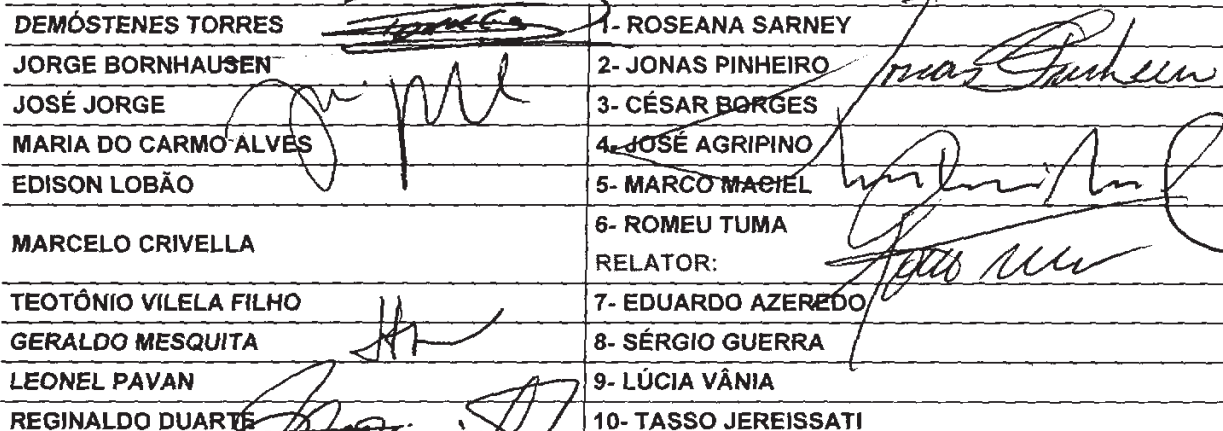 DEMÓSTENES TORRES 1- ROSEANA SARNEY
JORGE BORNHAUSEN 2- JONAS PINHEIRO Jonas Pinheiro
JOSÉ JORGE 3- CÉSAR BORGES
MARIA DO CARMO ALVES 4- JOSÉ AGRIPINO
EDISON LOBÃO 5- MARCO MACIEL
MARCELO CRIVELLA 6- ROMEU TUMA
RELATOR:
TEOTÔNIO VILELA FILHO 7- EDUARDO AZEREDO
GERALDO MESQUITA 8- SÉRGIO GUERRA
LEONEL PAVAN 9- LÚCIA VÂNIA
REGINALDO DUARTE 10- TASSO JEREISSATI